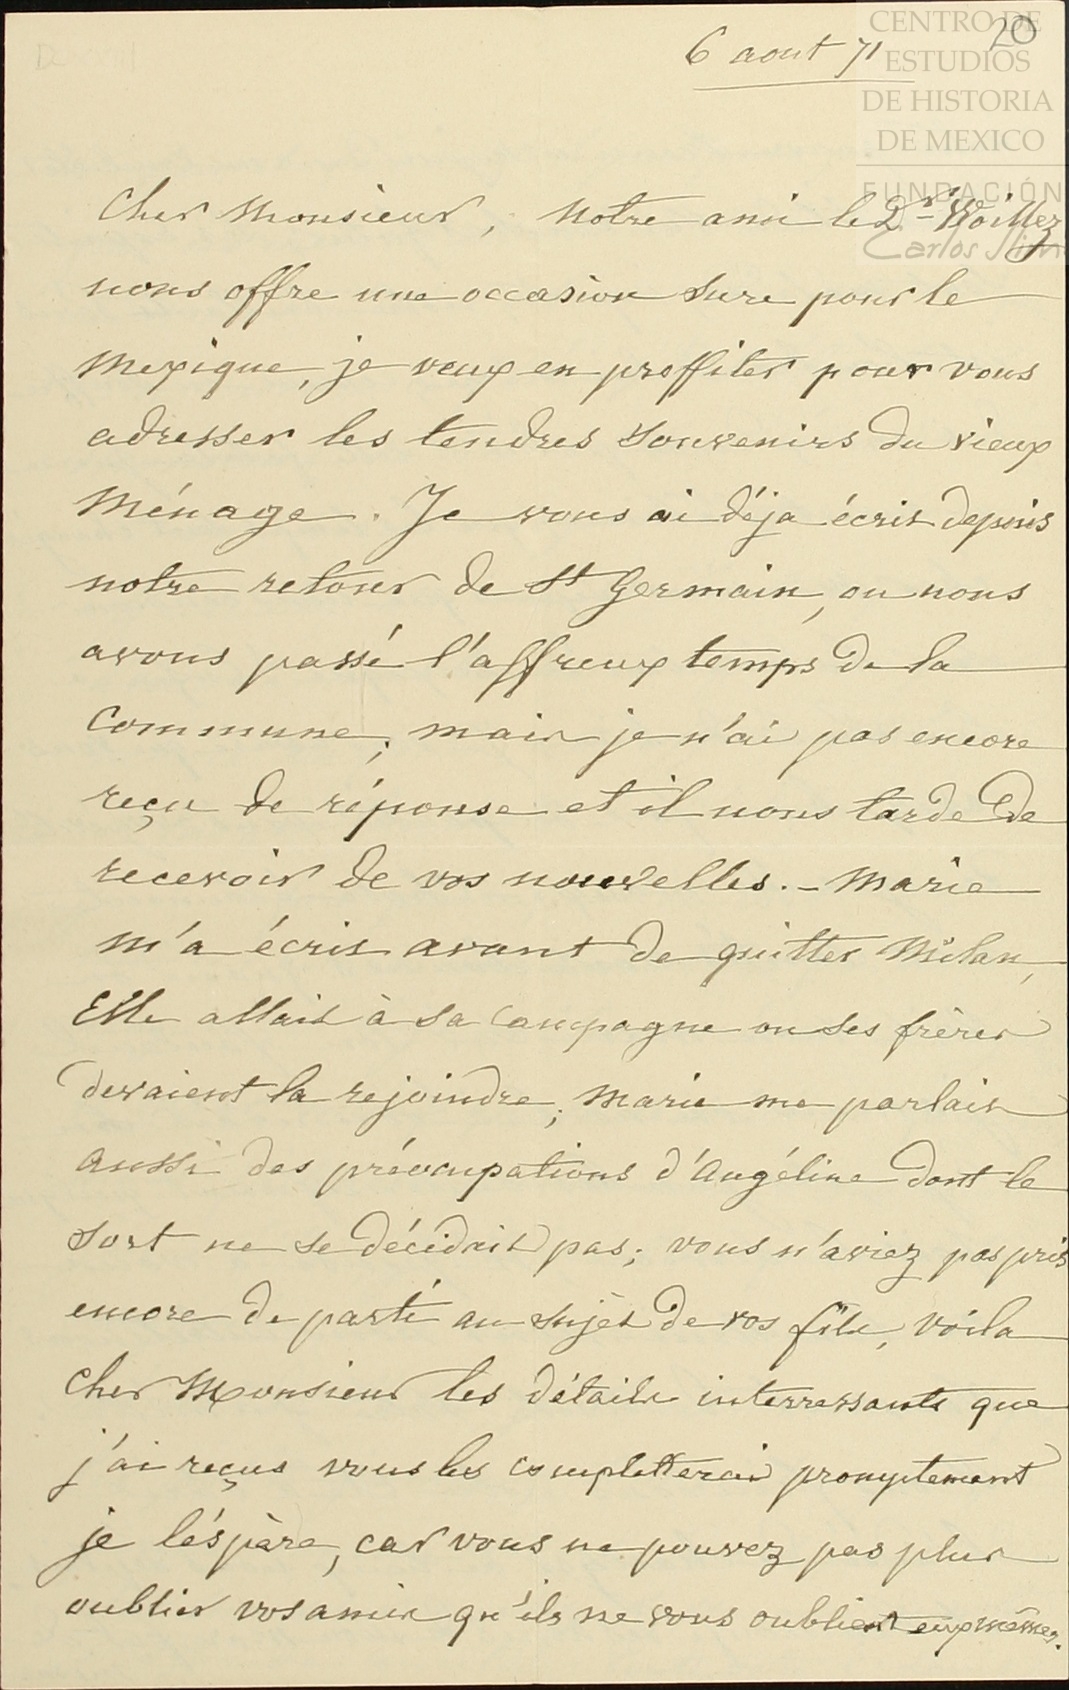 20
CENTRO DE
ESTUDIOS
DE HISTORIA
DE MEXICO
FUNDACIÓN
Carlos Slim
6 aout 71
Cher Monsieur, Notre ami le Dr Woillez
nous offre une occasion sure pour le
Mexique, je veux en proffiter pour vous
adresser les tendres souvenirs du vieux
Ménage. Je vous ai déja écrit depuis
notre retour de St Germain, ou nous
avons passé l'affreux temps de la
Commune, mais je n'ai pas encore
reçu de réponse et il nous tarde de
recevoir de vos nouvelles. - Marie
m'a écrit avant de quitter Milan,
Elle allait à sa Campagne ou ses frères
devaient la rejoindre; Marie me parlait
aussi des préocupations d'Angéline dont le
sort ne se décidait pas; vous n'aviez pas pris
encore de parti au sujet de vos fils, voila
cher Monsieur les détails interressants que
j'ai reçus vous les completterai promptement
je l'éspère, car vous ne pouvez pas plus
oublier vos amis qu'ils ne vous oublient eux mêmes.